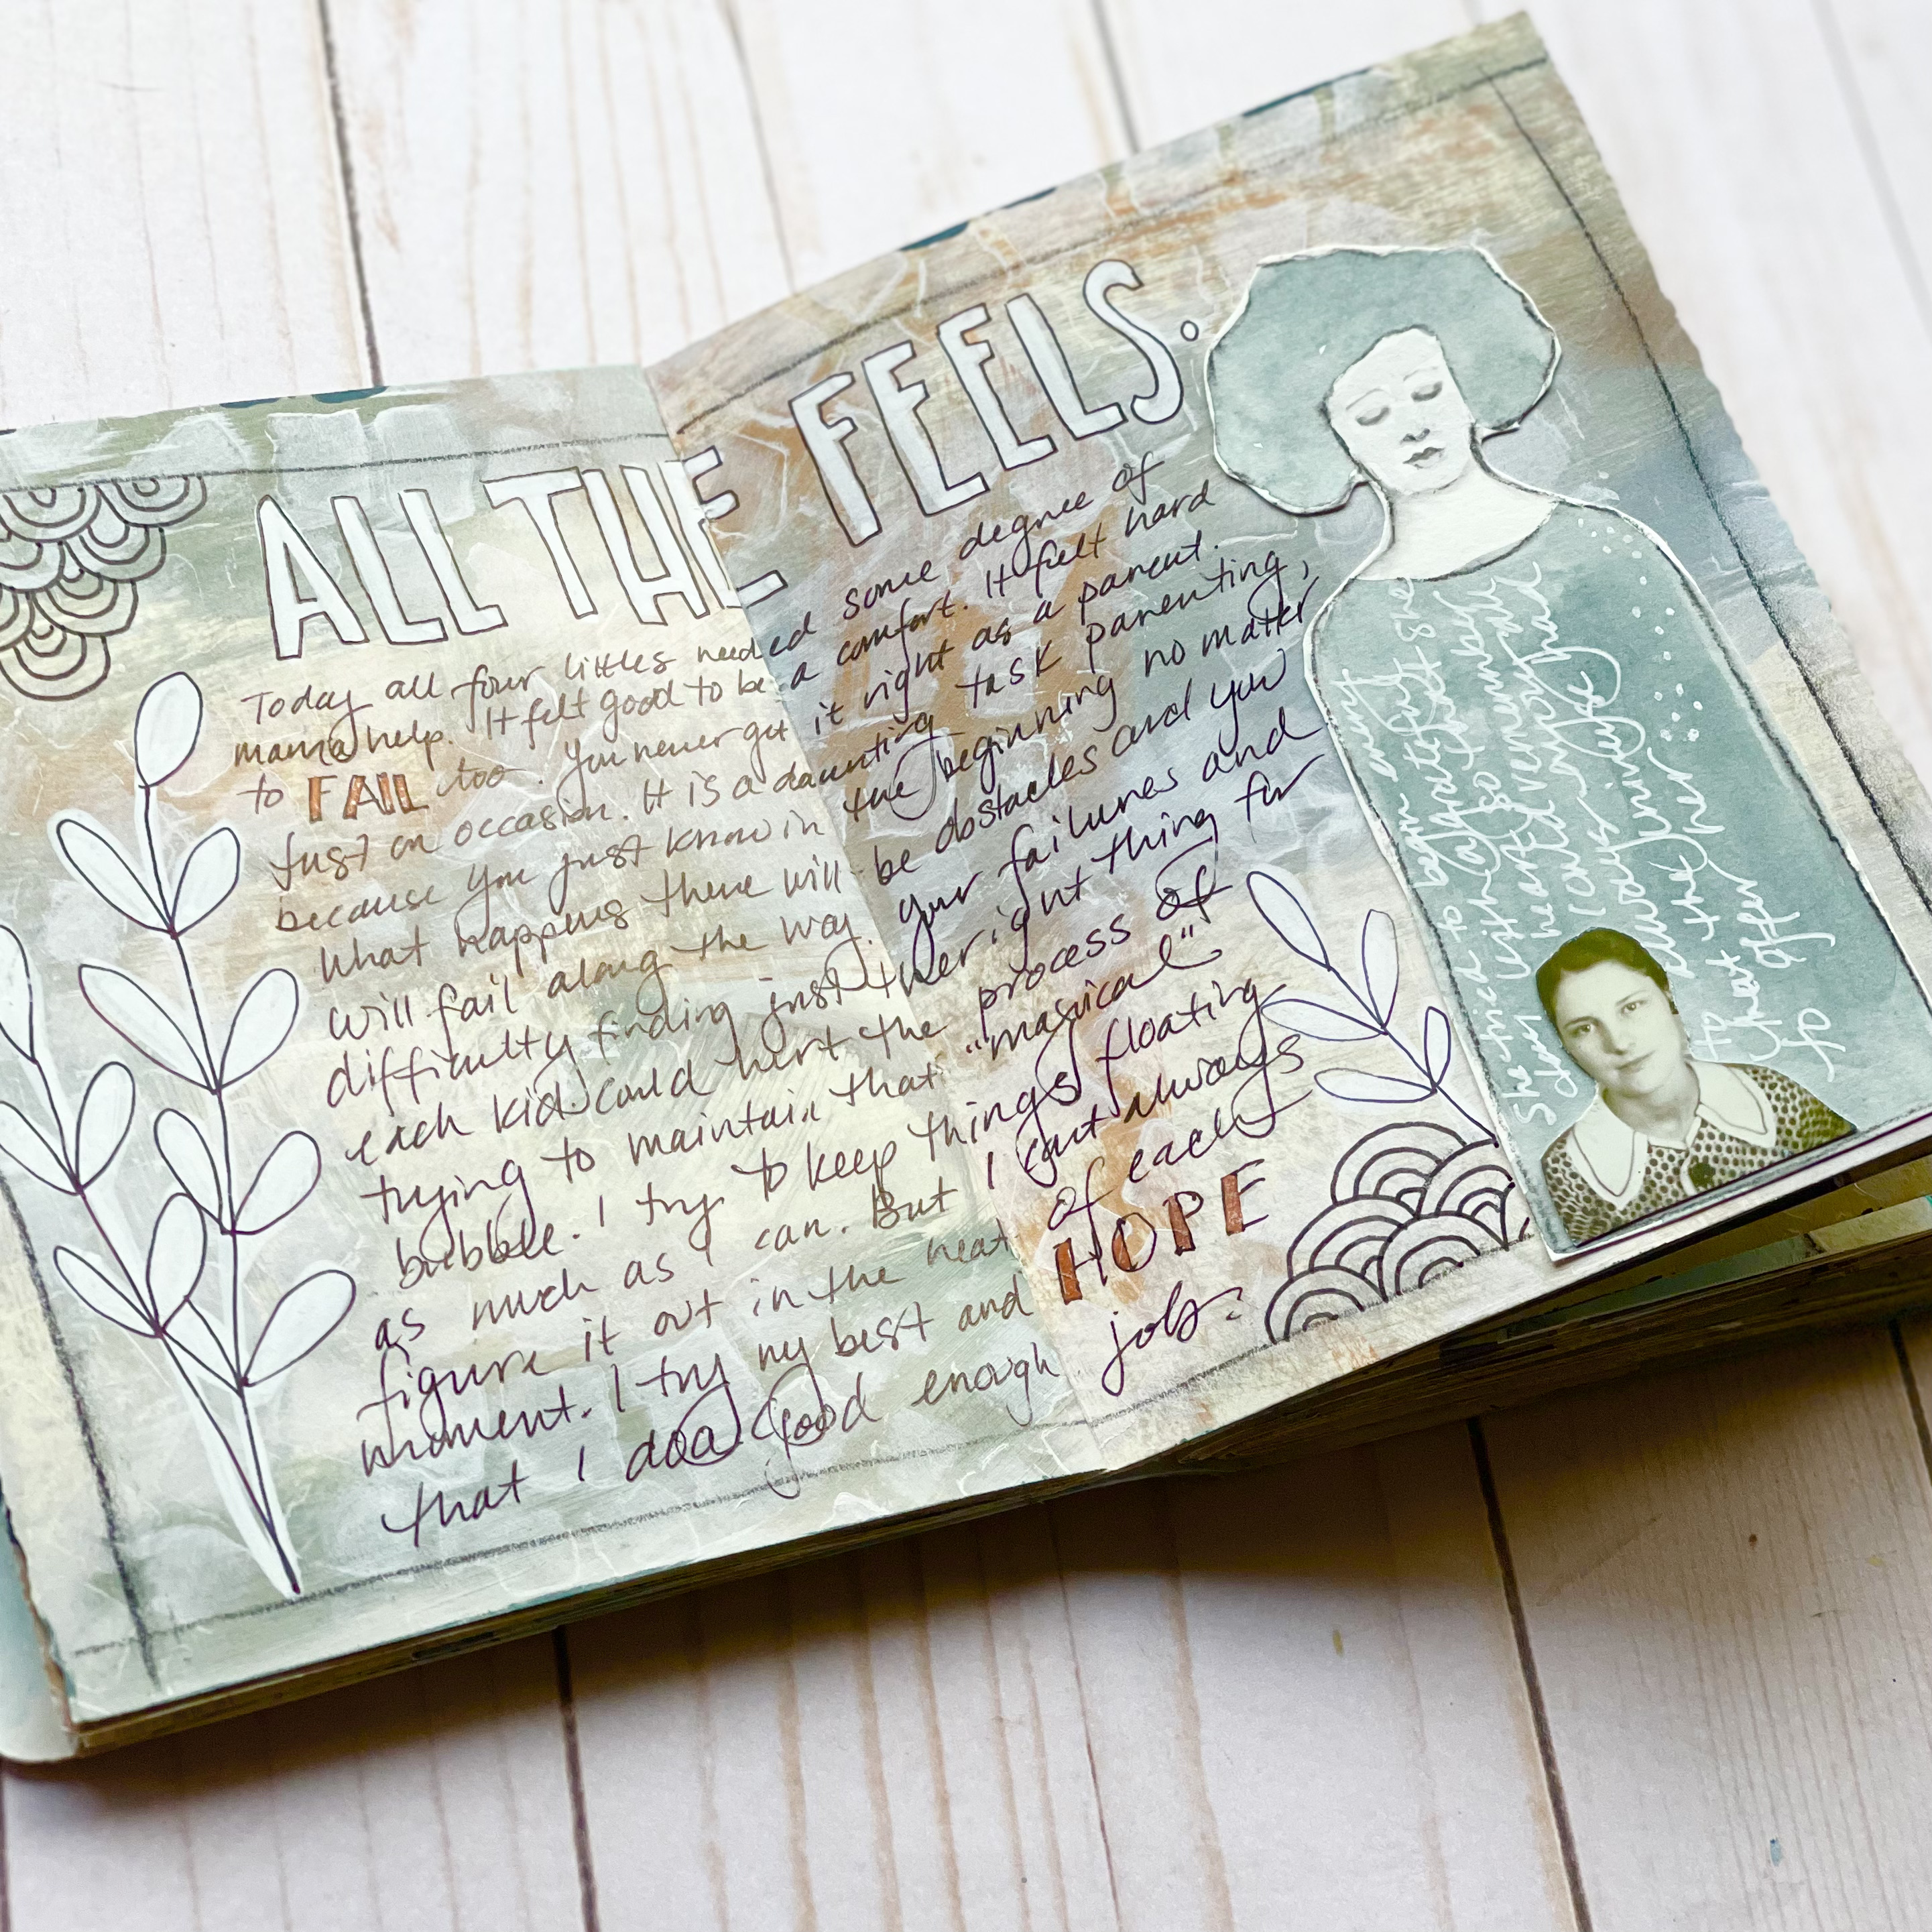 ALL THE FEELS.
Today all four littles needed some degree of
mama help. It felt good to be a comfort. It felt hard
to FAIL too. You never get it right as a parent.
Just on occasion. It is a daunting task parenting,
because you just know in the beginning no matter
what happens there will be obstacles and you
will fail along the way. Your failures and
difficulty finding just the right thing for
each kid could hurt the process of
trying to maintain that "magical"
bubble. I try to keep things floating
as much as I can. But I can't always
figure it out in the heat of each
moment. I try my best and HOPE
that I do a good enough job.
She tried to begin every
day with a grateful
heart so that she
would remember
always
what she had
her
to
after